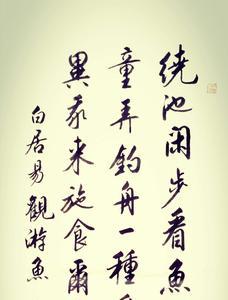 繞池閑步看魚
童弄釣舟一種
異我来施食爾
白居易觀游魚